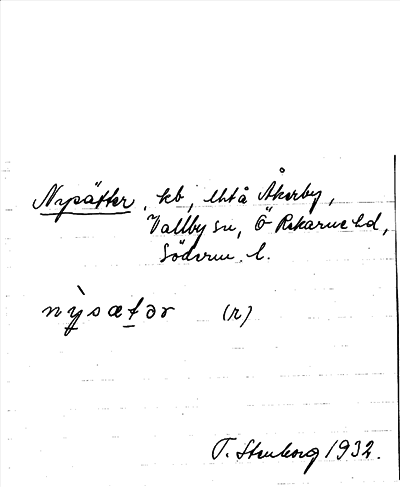 Nysätter, kb, Uhtå Åkerby,
Vallby sn, Ö Rekarne hd,
Söderm. l.
nỳ̖sætər (r)
T. Stenborg 1932.